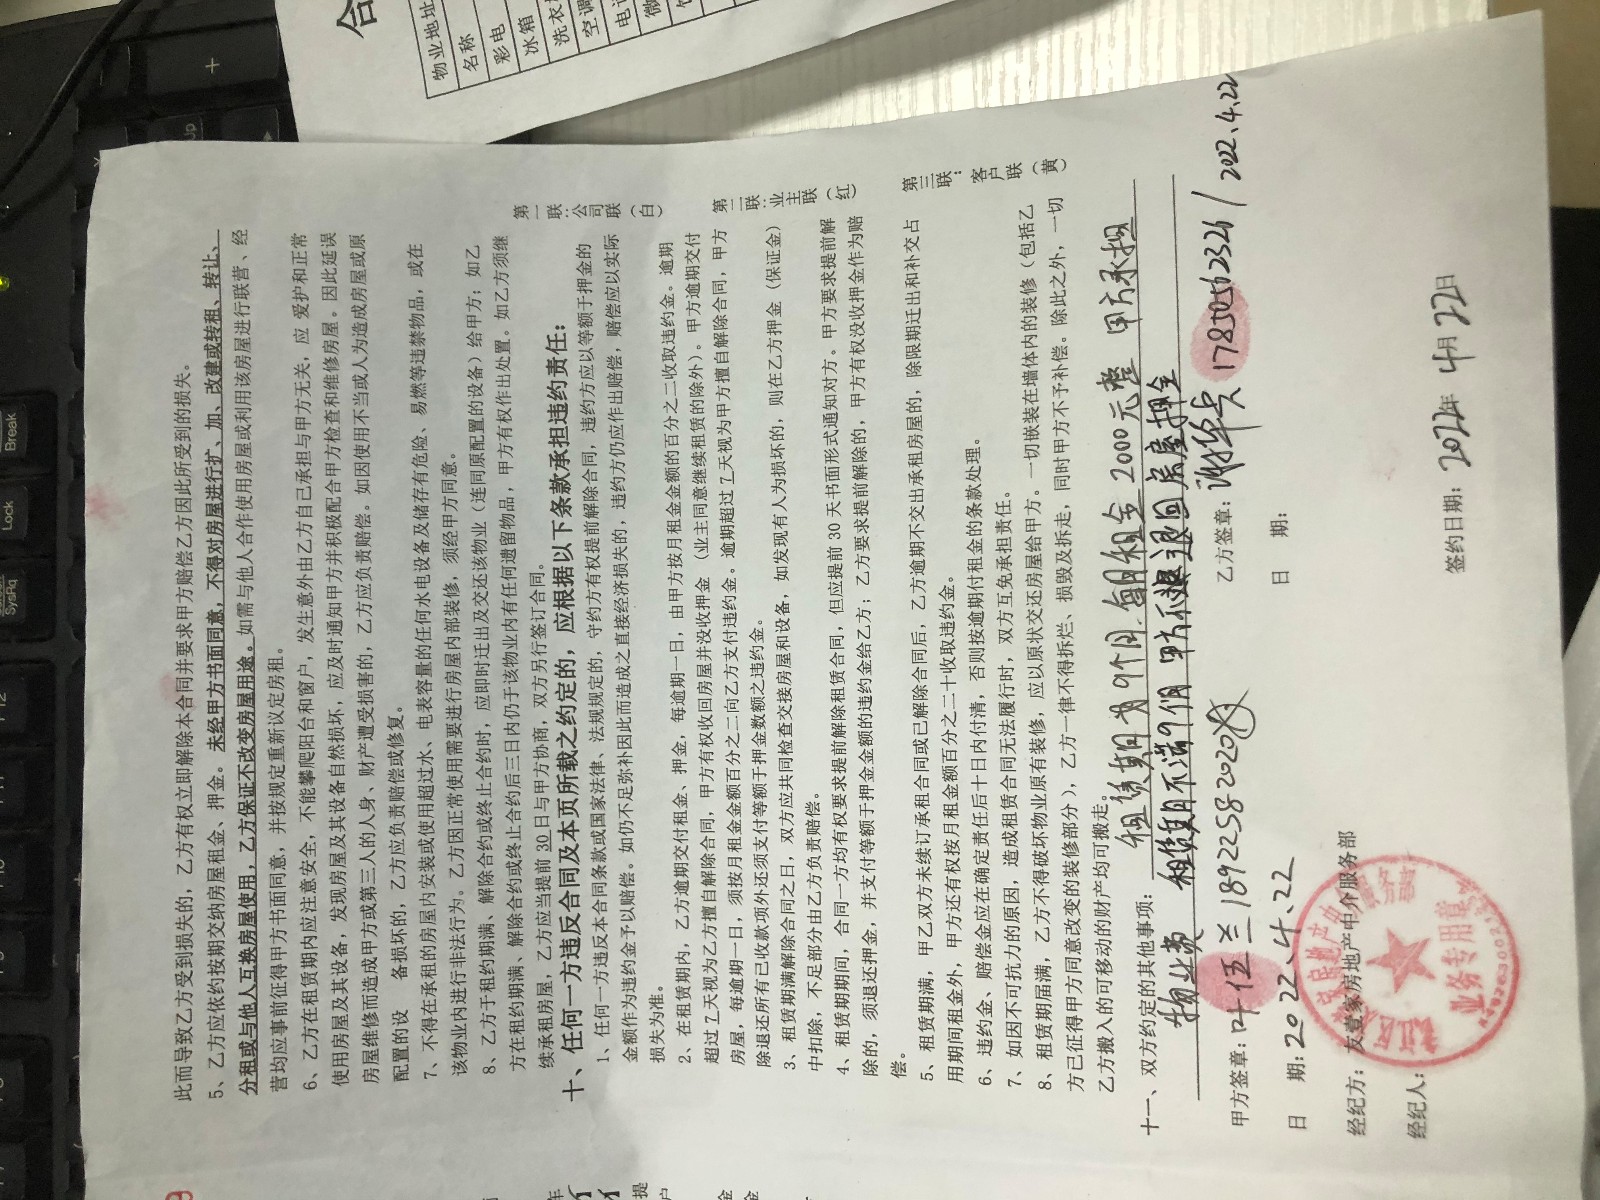 此而导致乙方受到损失的，乙方有权立即解除本合同并要求甲方赔偿乙方因此所受到的损失。
5、乙方应依约按期交纳房屋租金、押金。未经甲方书面同意，不得对房屋进行扩、加、改建或转租、转让、
分租或与他人互换房屋使用，乙方保证不改变房屋用途。如需与他人合作使用房屋或利用该房屋进行联营、经
营均应事前征得甲方书面同意，并按规定重新议定房租。
6、乙方在租赁期内应注意安全，不能攀爬阳台和窗户，发生意外由乙方自己承担与甲方无关，应 爱护和正常
使用房屋及其设备，发现房屋及其设备自然损坏，应及时通知甲方并积极配合甲方检查和维修房屋。因此延误
房屋维修而造成甲方或第三人的人身、财产遭受损害的，乙方应负责赔偿。如因使用不当或人为造成房屋或原
配置的设 备损坏的，乙方应负责赔偿或修复。
7、不得在承租的房屋内安装或使用超过水、电表容量的任何水电设备及储存有危险、易燃等违禁物品，或在
该物业内进行非法行为。乙方因正常使用需要进行房屋内部装修，须经甲方同意。
8、乙方于租约期满、解除合约或终止合约时，应即时迁出及交还该物业（连同原配置的设备）给甲方；如乙
方在租约期满、解除合约或终止合约后三日内仍于该物业内有任何遗留物品，甲方有权作出处置。如乙方须继
续承租房屋，乙方应当提前 30 日与甲方协商，双方另行签订合同。
十、任何一方违反合同及本页所载之约定的，应根据以下条款承担违约责任：
1、任何一方违反本合同条款或国家法律、法规规定的，守约方有权提前解除合同，违约方应以等额于押金的
金额作为违约金予以赔偿。如仍不足弥补因此而造成之直接经济损失的，违约方仍应作出赔偿，赔偿应以实际
损失为准。
2、在租赁期内，乙方逾期交付租金、押金，每逾期一日，由甲方按月租金金额的百分之二收取违约金。逾期
超过 7 天视为乙方擅自解除合同，甲方有权收回房屋并没收押金（业主同意继续租赁的除外）。甲方逾期交付
房屋，每逾期一日，须按月租金金额百分之二向乙方支付违约金。逾期超过 7 天视为甲方擅自解除合同，甲方
除退还所有已收款项外还须支付等额于押金数额之违约金。
3、租赁期满解除合同之日，双方应共同检查交接房屋和设备，如发现有人为损坏的，则在乙方押金（保证金）
中扣除，不足部分由乙方负责赔偿。
4、租赁期期间，合同一方均有权要求提前解除租赁合同，但应提前 30 天书面形式通知对方。甲方要求提前解
除的，须退还押金，并支付等额于押金金额的违约金给乙方；乙方要求提前解除的，甲方有权没收押金作为赔
偿。
5、租赁期满，甲乙双方未续订承租合同或已解除合同后，乙方逾期不交出承租房屋的，除限期迁出和补交占
用期间租金外，甲方还有权按月租金额百分之二十收取违约金。
6、违约金、赔偿金应在确定责任后十日内付清，否则按逾期付租金的条款处理。
7、如因不可抗力的原因，造成租赁合同无法履行时，双方互免承担责任。
8、租赁期届满，乙方不得破坏物业原有装修，应以原状交还房屋给甲方。一切嵌装在墙体内的装修（包括乙
方已征得甲方同意改变的装修部分），乙方一律不得拆烂、损毁及拆走，同时甲方不予补偿。除此之外，一切
乙方搬入的可移动的财产均可搬走。
十一、双方约定的其他事项：租赁期为9个月 每月租金2000元整 甲方承担
物业费 租赁期不满9个月 甲方不退回房屋押金
甲方签章：叶伍兰 18922582020 乙方签章： 17850562326 / 2022.4.22
日 期：2022.4.22 日 期：
经纪方：友壹家房地产中介服务部
经纪人： 签约日期：2022年 4月 22日
第一联：公司联（白）
第二联：业主联（红）
第三联：客户联（黄）
业务专用章
合
物业地址
名称
彩电
冰箱
洗衣
空调
Break
Lock
SysRq
F12